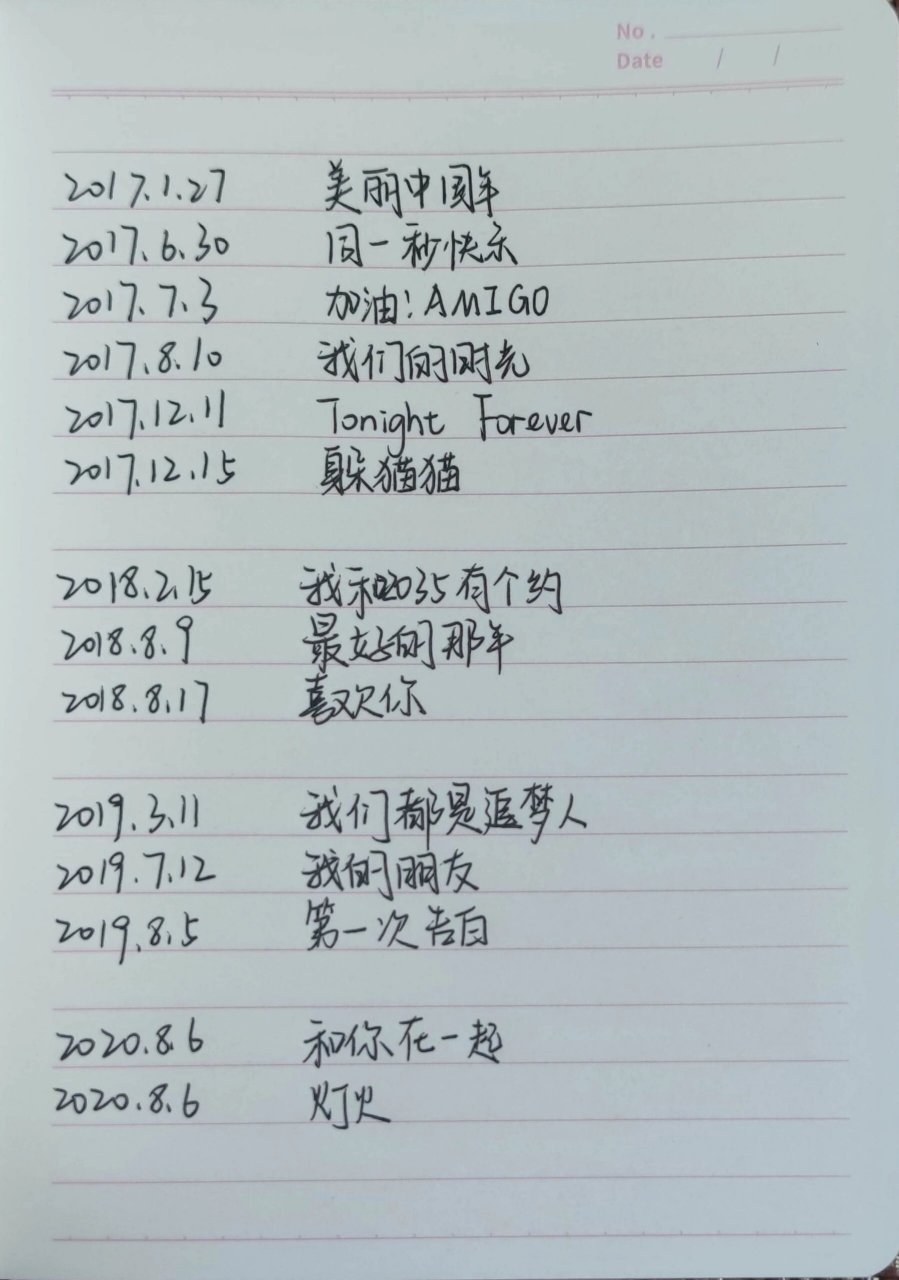 No.
Date / /
2017.1.27 美丽中国年
2017.6.30 同一秒快乐
2017.7.3 加油!AMIGO
2017.8.10 我们的时光
2017.12.11 Tonight Forever
2017.12.15 躲猫猫
2018.2.15 我和2035有个约
2018.8.9 最好的那年
2018.8.17 喜欢你
2019.3.11 我们都是追梦人
2019.7.12 我的朋友
2019.8.5 第一次告白
2020.8.6 和你在一起
2020.8.6 灯火